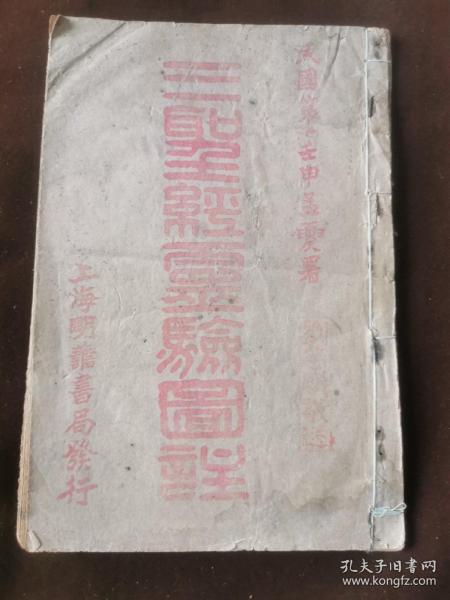 民國第一壬申孟夏署
三聖經靈驗圖註
上海明善書局發行
孔夫子旧书网
www.kongfz.com